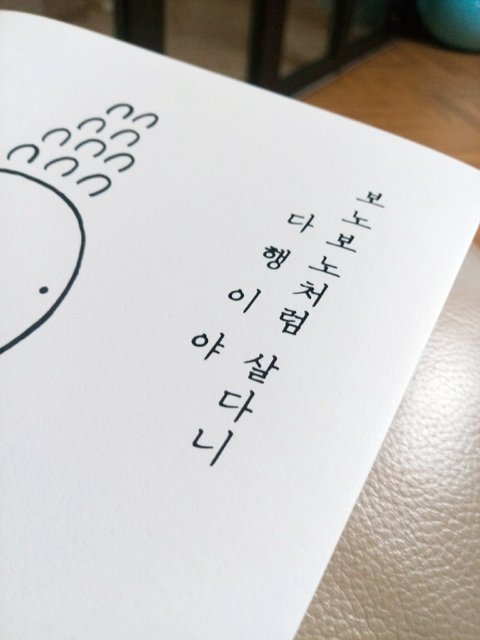 보노보노처럼 살다니
다행이야